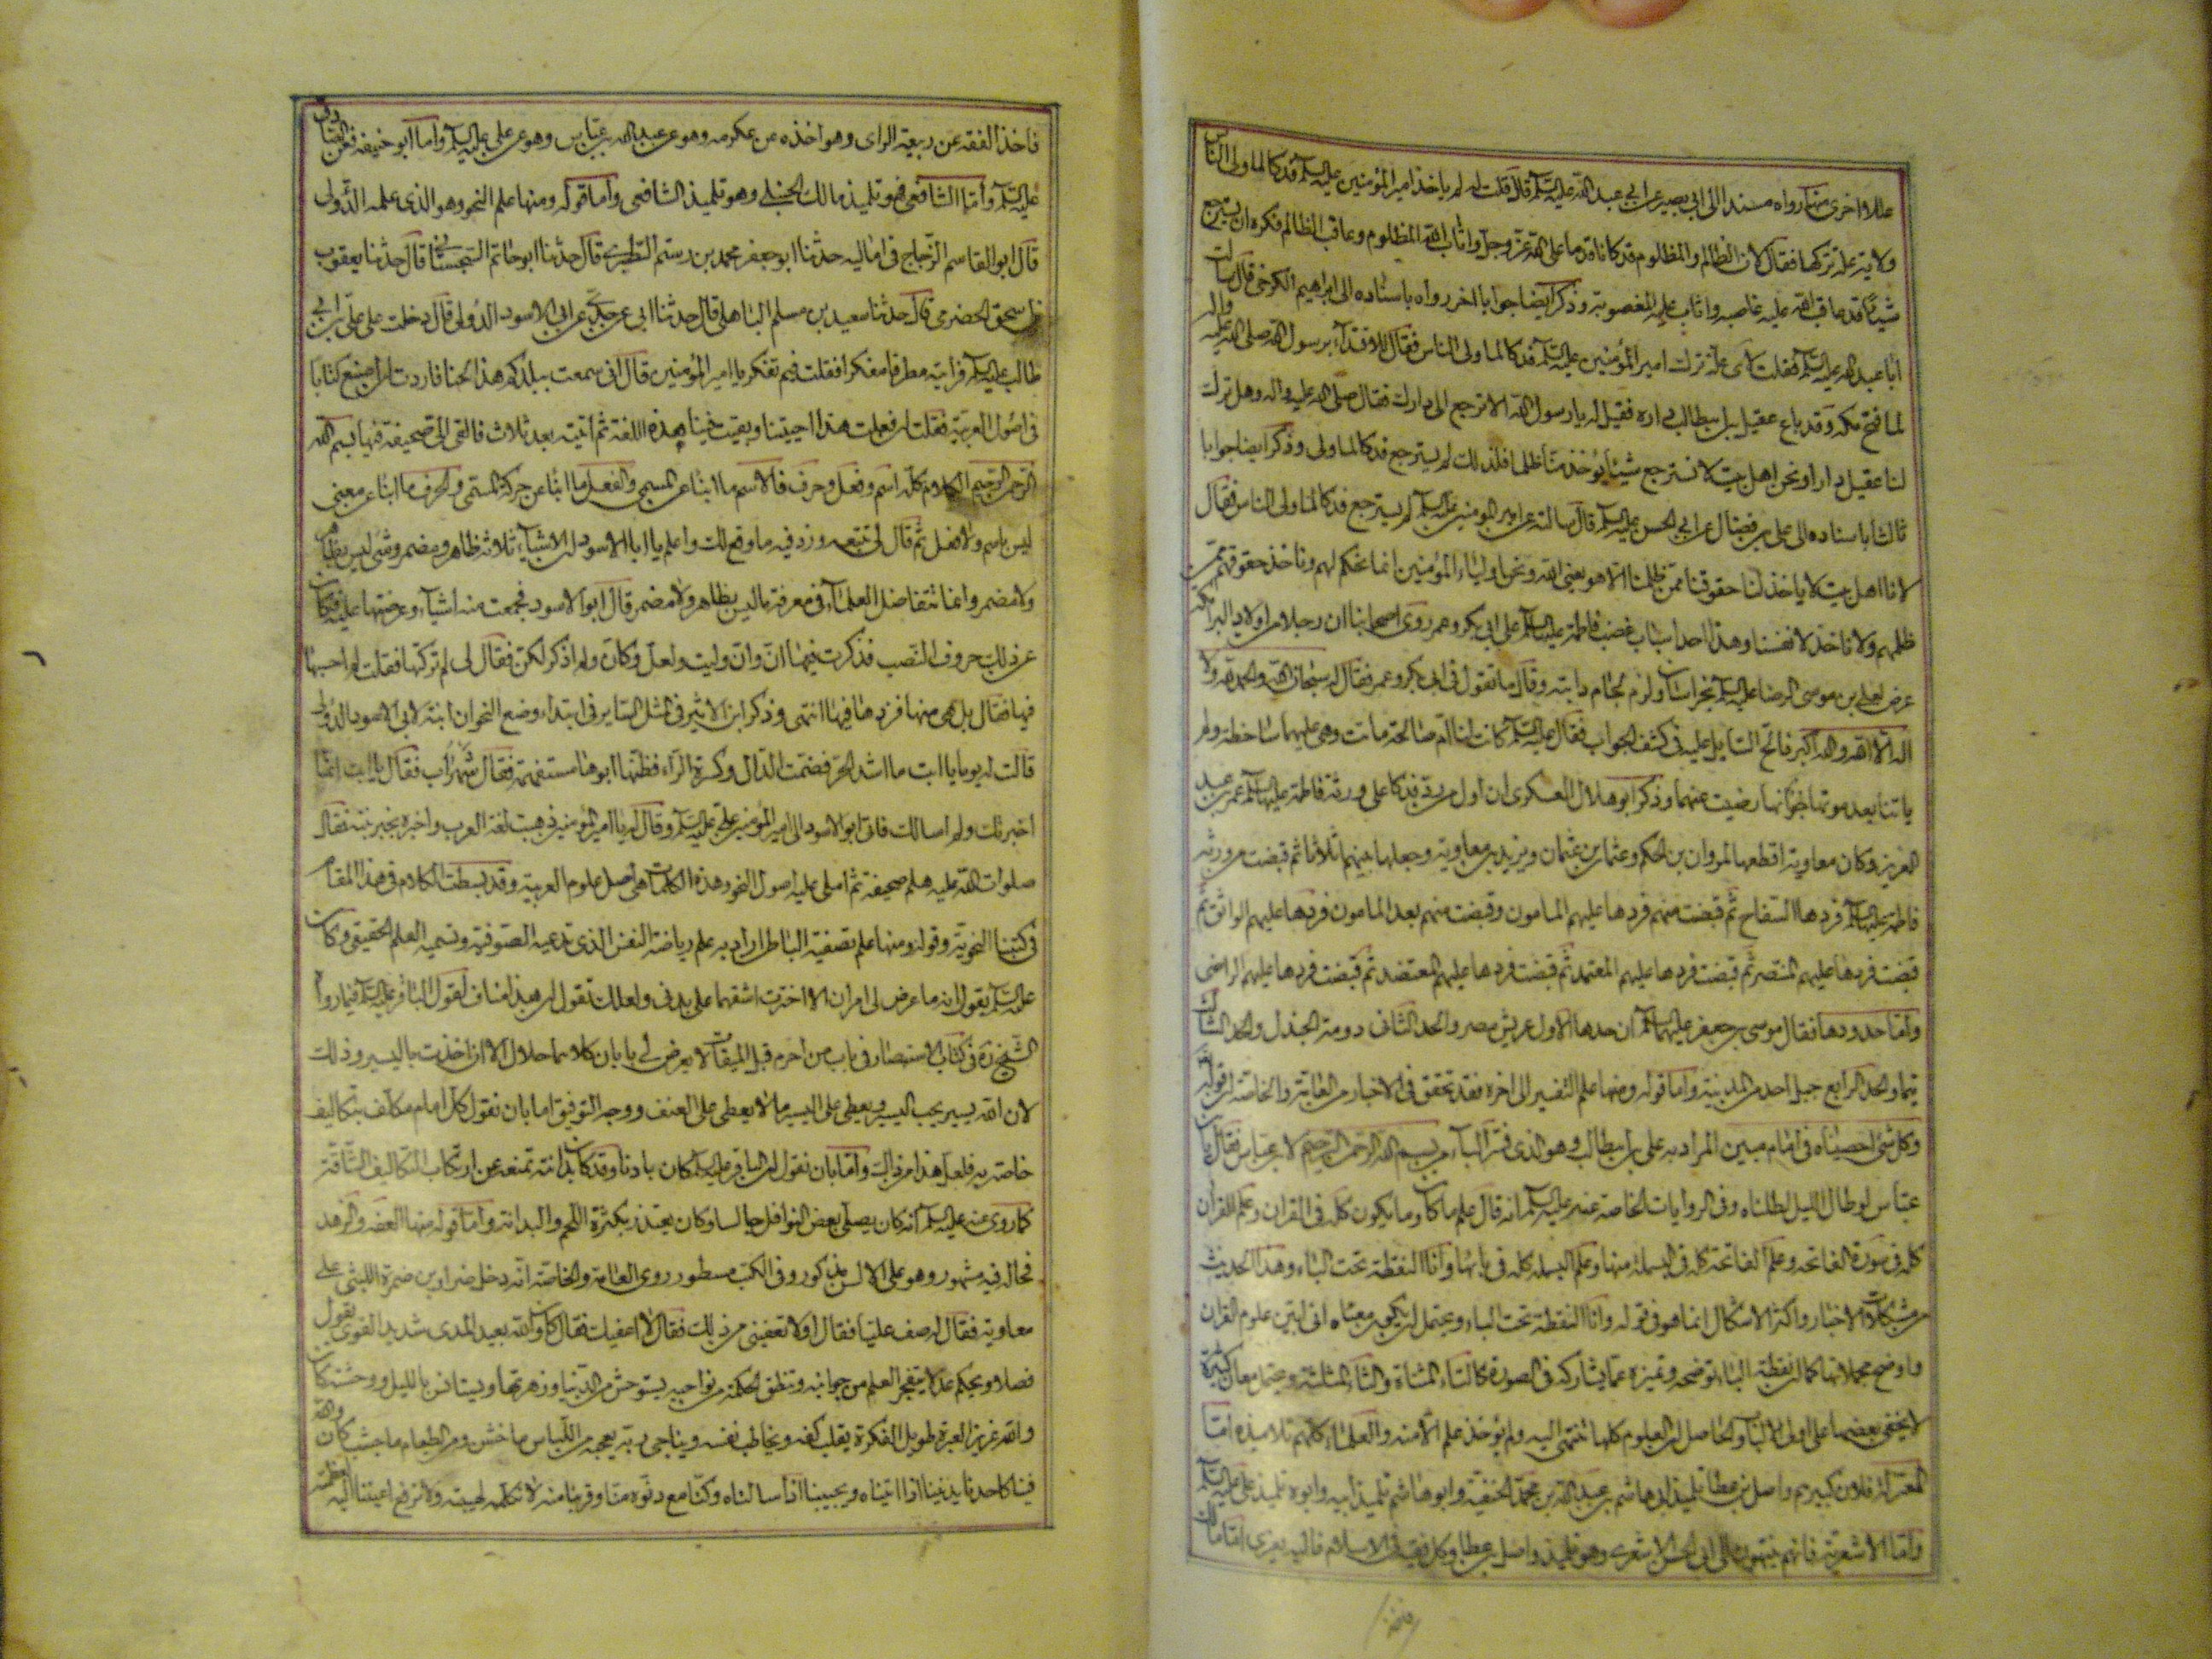 عللا اخرى منها ما رواه مسندا الى ابى بصير عن ابي عبد الله عليه السلم قال قلت له لم ياخذ امير المؤمنين عليه السلم فدكا لما ولى الناس
ولاية علة تركها فقال لان الظالم والمظلوم قد كانا قدما على الله عز وجل واثاب الله المظلوم وعاقب الظالم فكره ان يسترجع
شيئا قد عاقب الله عليه غاصبه واثاب عليه المغصوبة وذكر ايضا جوابا اخر رواه باسناده الى ابراهيم الكرخى قال سالت
ابا عبد الله عليه السلم فقلت لاى علة ترك امير المؤمنين عليه السلم فدكا لما ولى الناس فقال للاقتداء برسول الله صلى الله عليه واله
لما فتح مكة وقد باع عقيل بن ابيطالب داره فقيل له يا رسول الله الا ترجع الى دارك فقال صلى الله عليه واله وهل ترك
لنا عقيل دارا ونحن اهل بيت لا نسترجع شيئا يؤخذ منا ظلما فلذلك لم يسترجع فدكا لما ولى وذكر ايضا جوابا
ثالثا باسناده الى على بن فضال عن ابي الحسن عليه السلم قال سالته عن امير المومنين عليه السلم لم يسترجع فدكا لما ولى الناس فقال
لانا اهل بيت لا ياخذ لنا حقوقنا ممن ظلمنا الا هو يعنى الله ونحن اولياء المؤمنين انما نحكم لهم وناخذ حقوقهم ممن
ظلمهم ولا ناخذ لانفسنا وهذا احد اسباب غضب فاطمة عليها السلم على ابى بكر وعمر روى اصحابنا ان رجلا من اولاد البرامكة
عرض لعلى بن موسى الرضا عليه السلم بخراسان ولزم لجام دابته وقال ما تقول فى ابى بكر وعمر فقال له سبحان الله والحمد لله ولا
اله الا الله والله اكبر فالح السايل عليه فى كشف الجواب فقال عليه السلم كانت لنا ام صالحة ماتت وهى عليهما ساخطة ولم
ياتنا بعد موتها خبر انها رضيت عنهما وذكر ابو هلال العسكرى ان اول من رد فدكا على ورثة فاطمة عليها السلم عمر بن عبد
العزيز وكان معاوية اقطعها لمروان بن الحكم وعثمان بن عثمان ويزيد بن معاوية وجعلها بينهم اثلاثا ثم قبضت من ورثة
فاطمة عليها السلم فردها السفاح ثم قبضت منهم فردها عليهم المامون وقبضت منهم بعد المامون فردها عليهم الواثق ثم
قبضت فردها عليهم المنتصر ثم قبضت فردها عليهم المعتمد ثم قبضت فردها عليهم المعتضد ثم قبضت فردها عليهم الراضى
واما حدودها فقال موسى بن جعفر عليهما السلم ان حدها الاول عريش مصر والحد الثانى دومة الجندل والحد الثالث
تيما والحد الرابع جبل احد من المدينة واما قوله ومنها علم التفسير الى اخره فقد تحقق فى الاخبار من العامة والخاصة ان قوله تعالى
وكل شئ احصيناه فى امام مبين المراد به على بن ابيطالب وهو الذى فسر الباء من بسم الله الرحمن الرحيم لابن عباس فقال يا بن
عباس لو طال الليل لطلناه وفى الروايات الخاصة عنه عليه السلم انه قال علم ما كان وما يكون كله فى القران وعلم القران
كله فى سورة الفاتحه وعلم الفاتحة كله فى البسملة منها وعلم البسملة كله فى بائها وانا النقطة تحت الباء وهذا الحديث
من مشكلات الاخبار واكثر الاشكال انما هو فى قوله وانا النقطة تحت الباء ويحتمل ان يكون معناه انى ابين علوم القران
واوضح مجملاتها كما ان نقطة الباء توضحه وتميزه عما يشاركه فى الصورة كالتاء المثناة والثاء المثلثة ويحتمل معان كثيرة
لا يخفى بعضها على اولى الالباب والحاصل ان العلوم كلها تنتهى اليه ولم يؤخذ علم الا منه والعلماء كلهم تلاميذه اما
المعتزلة فلان كبيرهم واصل بن عطا تلميذ ابى هاشم بن عبد الله بن محمد الحنفية وابو هاشم تلميذ ابيه وابوه تلميذ على عليه السلم
واما الاشعرية فانهم ينتهون الى ابى الحسن الاشعرى وهو تلميذ واصل بن عطا وكل فقيه فى الاسلام فاليه يعزى اما مالك
فاخذ الفقه عن ربيعة الراى وهو اخذه عن عكرمه وهو عن عبد الله بن عباس وهو عن على عليه السلم واما ابو حنيفه فعن الصادق
عليه السلم واما الشافعى فهو تلميذ مالك والحنبلى وهو تلميذ الشافعى واما قوله ومنها علم النحو وهو الذى علمه الدؤلى
قال ابو القاسم الزجاج فى اماليه حدثنا ابو جعفر محمد بن رستم الطبرى قال حدثنا ابو حاتم السجستانى قال حدثنا يعقوب
بن اسحق الحضرمى قال حدثنا سعيد بن مسلم الباهلى قال حدثنا ابى عن جدى عن ابى الاسود الدؤلى قال دخلت على على بن ابي
طالب عليه السلم فرايته مطرقا مفكرا فقلت فيم تفكر يا امير المؤمنين قال انى سمعت ببلدكم هذا لحنا فاردت ان اصنع كتابا
فى اصول العربية فقلت ان فعلت هذا احييتنا وبقيت فينا هذه اللغة ثم اتيته بعد ثلاث فالقى الى صحيفة فيها بسم الله
الرحمن الرحيم الكلام كله اسم وفعل وحرف فالاسم ما انبأ عن المسمى والفعل ما انبأ عن حركة المسمى والحرف ما انبأ عن معنى
ليس باسم ولا فعل ثم قال لى تتبعه وزد فيه ما وقع لك واعلم يا ابا الاسود ان الاشياء ثلاثة ظاهر ومضمر وشئ ليس بظاهر
ولا مضمر وانما تتفاضل العلماء فى معرفة ما ليس بظاهر ولا مضمر قال ابو الاسود فجمعت منه اشياء وعرضتها عليه فكان
من ذلك حروف النصب فذكرت فيها ان وان وليت ولعل وكان ولم اذكر لكن فقال لى لم تركتها فقلت لم احسبها
فيها فقال بل هى منها فزدها فيها انتهى وذكر ابن الاثير فى المثل الساير فى ابتداء وضع النحو ان ابنة لابى الاسود الدؤلى
قالت له يوما يا ابت ما اشد الحر فضمت الدال وكسرت الراء فظنها ابوها مستفهمة فقال شهر اب فقال يا ابت انما
اخبرتك ولم اسالك فاتى ابو الاسود الى امير المؤمنين على عليه السلم وقال له يا امير المؤمنين ذهبت لغة العرب واخبره بخبر بنته فقال
صلوات الله عليه هلم صحيفة ثم املى عليه اصول النحو وهذه الكلمات هى اصل علوم العربية وقد بسطت الكلام فى هذا المقام
فى كتبنا النحوية وقوله ومنها علم تصفية الباطن اراد به علم رياضة النفس الذى تدعيه الصوفية وتسميه العلم الحقيقى وكان
عليه السلم يقول انه ما عرض لى امران الا اخترت اشقهما على بدنى ولعلك تقول ان هذا مناف لقول الباقر عليه السلم فيما رواه
الشيخ ره فى كتاب الاستبصار فى باب من احرم قبل الميقات لا يعرض لى بابان كلاهما حلال الا اخذت باليسير وذلك
لان الله يسير يحب اليسير ويعطى على اليسير ما لا يعطى على العنف ووجه التوفيق اما بان نقول كل امام مكلف بتكاليف
خاصة به فلعل هذا من ذلك واما بان نقول ان الباقر عليه السلم كان بادنا وقد كان بدانته تمنعه عن ارتكاب التكاليف الشاقة
كما روى عنه عليه السلم انه كان يصلى بعض النوافل جالسا وكان يعتذر بكثرة اللحم والبدانة واما قوله منها العفة والزهد
فحاله فيه مشهور وهو على الالسن مذكور وفى الكتب مسطور روى العامة والخاصة انه دخل ضرار بن ضمرة الليثى على
معاوية فقال له صف عليا فقال اولا تعفينى من ذلك فقال لا اعفيك فقال كان والله بعيد المدى شديد القوى يقول
فصلا ويحكم عدلا يتفجر العلم من جوانبه وتنطق الحكمة من نواحيه يستوحش من الدنيا وزهرتها ويستانس بالليل ووحشته كان
والله غزير العبرة طويل الفكرة يقلب كفه ويخاطب نفسه ويناجى ربه يعجبه من اللباس ما خشن ومن الطعام ما جشب كان والله
فينا كاحدنا يدنينا اذا اتيناه ويجيبنا اذا سالناه وكنا مع دنوه منا وقربنا منه لا نكلمه لهيبته ولا نرفع اعيننا اليه لعظمته